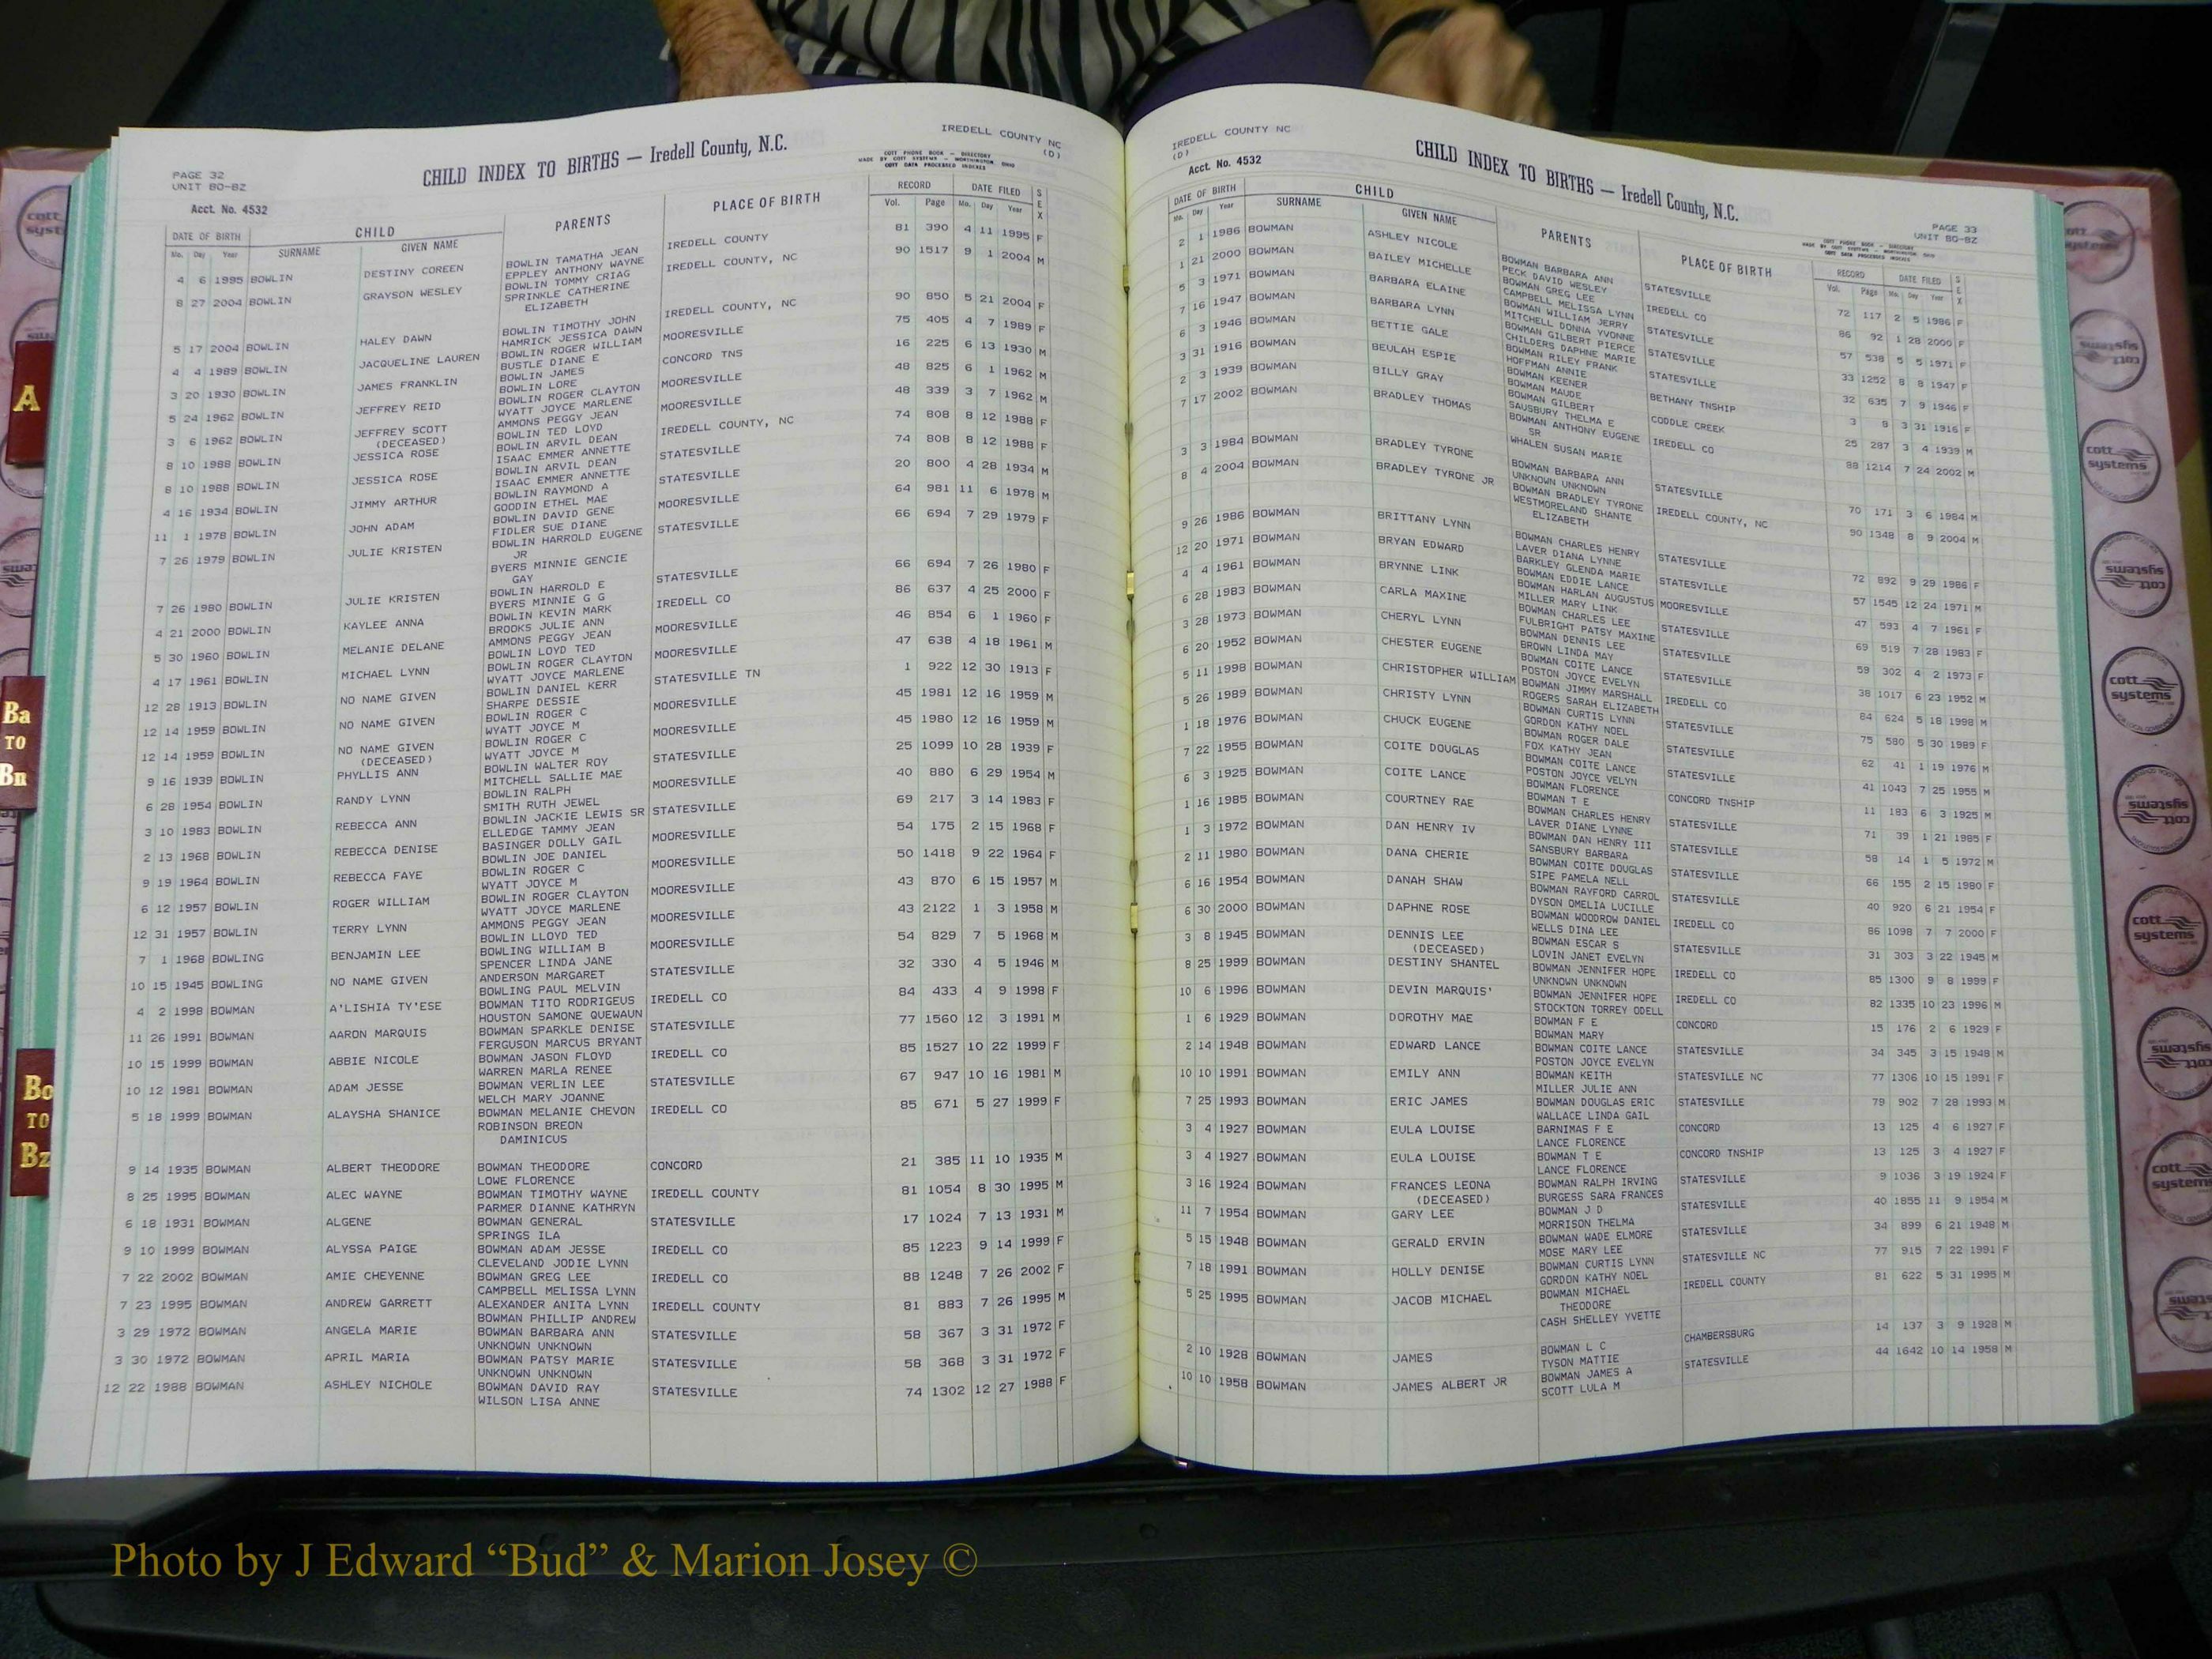 IREDELL COUNTY NC
(D)
CHILD INDEX TO BIRTHS — Iredell County, N.C.
COTT PHONE BOOK — DIRECTORY
MADE BY COTT SYSTEMS — WORTHINGTON OHIO
COTT DATA PROCESSED INDEXES
PAGE 32
UNIT BO-BZ
Acct. No. 4532
DATE OF BIRTH CHILD PARENTS PLACE OF BIRTH RECORD DATE FILED SEX
Mo. Day Year SURNAME GIVEN NAME Vol. Page Mo. Day Year
4 6 1995 BOWLIN DESTINY COREEN BOWLIN TAMATHA JEAN IREDELL COUNTY 81 390 4 11 1995 F
EPPLEY ANTHONY WAYNE
8 27 2004 BOWLIN GRAYSON WESLEY BOWLIN TOMMY CRIAG IREDELL COUNTY, NC 90 1517 9 1 2004 M
SPRINKLE CATHERINE
ELIZABETH
5 17 2004 BOWLIN HALEY DAWN BOWLIN TIMOTHY JOHN IREDELL COUNTY, NC 90 850 5 21 2004 F
HAMRICK JESSICA DAWN
4 4 1989 BOWLIN JACQUELINE LAUREN BOWLIN ROGER WILLIAM MOORESVILLE 75 405 4 7 1989 F
BUSTLE DIANE E
3 20 1930 BOWLIN JAMES FRANKLIN BOWLIN JAMES CONCORD TNS 16 225 6 13 1930 M
BOWLIN LORE
5 24 1962 BOWLIN JEFFREY REID BOWLIN ROGER CLAYTON MOORESVILLE 48 825 6 1 1962 M
WYATT JOYCE MARLENE
3 6 1962 BOWLIN JEFFREY SCOTT AMMONS PEGGY JEAN MOORESVILLE 48 339 3 7 1962 M
(DECEASED) BOWLIN TED LOYD
8 10 1988 BOWLIN JESSICA ROSE BOWLIN ARVIL DEAN IREDELL COUNTY, NC 74 808 8 12 1988 F
ISAAC EMMER ANNETTE
8 10 1988 BOWLIN JESSICA ROSE BOWLIN ARVIL DEAN STATESVILLE 74 808 8 12 1988 F
ISAAC EMMER ANNETTE
4 16 1934 BOWLIN JIMMY ARTHUR BOWLIN RAYMOND A STATESVILLE 20 800 4 28 1934 M
GOODIN ETHEL MAE
11 1 1978 BOWLIN JOHN ADAM BOWLIN DAVID GENE MOORESVILLE 64 981 11 6 1978 M
FIDLER SUE DIANE
7 26 1979 BOWLIN JULIE KRISTEN BOWLIN HARROLD EUGENE STATESVILLE 66 694 7 29 1979 F
JR
BYERS MINNIE GENCIE
GAY
7 26 1980 BOWLIN JULIE KRISTEN BOWLIN HARROLD E STATESVILLE 66 694 7 26 1980 F
BYERS MINNIE G G
4 21 2000 BOWLIN KAYLEE ANNA BOWLIN KEVIN MARK IREDELL CO 86 637 4 25 2000 F
BROOKS JULIE ANN
5 30 1960 BOWLIN MELANIE DELANE AMMONS PEGGY JEAN MOORESVILLE 46 854 6 1 1960 F
BOWLIN LOYD TED
4 17 1961 BOWLIN MICHAEL LYNN BOWLIN ROGER CLAYTON MOORESVILLE 47 638 4 18 1961 M
WYATT JOYCE MARLENE
12 28 1913 BOWLIN NO NAME GIVEN BOWLIN DANIEL KERR STATESVILLE TN 1 922 12 30 1913 F
SHARPE DESSIE
12 14 1959 BOWLIN NO NAME GIVEN BOWLIN ROGER C MOORESVILLE 45 1981 12 16 1959 M
WYATT JOYCE M
12 14 1959 BOWLIN NO NAME GIVEN BOWLIN ROGER C MOORESVILLE 45 1980 12 16 1959 M
(DECEASED) WYATT JOYCE M
9 16 1939 BOWLIN PHYLLIS ANN BOWLIN WALTER ROY STATESVILLE 25 1099 10 28 1939 F
MITCHELL SALLIE MAE
6 28 1954 BOWLIN RANDY LYNN BOWLIN RALPH MOORESVILLE 40 880 6 29 1954 M
SMITH RUTH JEWEL
3 10 1983 BOWLIN REBECCA ANN BOWLIN JACKIE LEWIS SR STATESVILLE 69 217 3 14 1983 F
ELLEDGE TAMMY JEAN
2 13 1968 BOWLIN REBECCA DENISE BASINGER DOLLY GAIL MOORESVILLE 54 175 2 15 1968 F
BOWLIN JOE DANIEL
9 19 1964 BOWLIN REBECCA FAYE BOWLIN ROGER C MOORESVILLE 50 1418 9 22 1964 F
WYATT JOYCE M
6 12 1957 BOWLIN ROGER WILLIAM BOWLIN ROGER CLAYTON MOORESVILLE 43 870 6 15 1957 M
WYATT JOYCE MARLENE
12 31 1957 BOWLIN TERRY LYNN AMMONS PEGGY JEAN MOORESVILLE 43 2122 1 3 1958 M
BOWLIN LLOYD TED
7 1 1968 BOWLING BENJAMIN LEE BOWLING WILLIAM B MOORESVILLE 54 829 7 5 1968 M
SPENCER LINDA JANE
10 15 1945 BOWLING NO NAME GIVEN ANDERSON MARGARET STATESVILLE 32 330 4 5 1946 M
BOWLING PAUL MELVIN
4 2 1998 BOWMAN A'LISHIA TY'ESE BOWMAN TITO RODRIGEUS IREDELL CO 84 433 4 9 1998 F
HOUSTON SAMONE QUEWAUN
11 26 1991 BOWMAN AARON MARQUIS BOWMAN SPARKLE DENISE STATESVILLE 77 1560 12 3 1991 M
FERGUSON MARCUS BRYANT
10 15 1999 BOWMAN ABBIE NICOLE BOWMAN JASON FLOYD IREDELL CO 85 1527 10 22 1999 F
WARREN MARLA RENEE
10 12 1981 BOWMAN ADAM JESSE BOWMAN VERLIN LEE STATESVILLE 67 947 10 16 1981 M
WELCH MARY JOANNE
5 18 1999 BOWMAN ALAYSHA SHANICE BOWMAN MELANIE CHEVON IREDELL CO 85 671 5 27 1999 F
ROBINSON BREON
DAMINICUS
9 14 1935 BOWMAN ALBERT THEODORE BOWMAN THEODORE CONCORD 21 385 11 10 1935 M
LOWE FLORENCE
8 25 1995 BOWMAN ALEC WAYNE BOWMAN TIMOTHY WAYNE IREDELL COUNTY 81 1054 8 30 1995 M
PARMER DIANNE KATHRYN
6 18 1931 BOWMAN ALGENE BOWMAN GENERAL STATESVILLE 17 1024 7 13 1931 M
SPRINGS ILA
9 10 1999 BOWMAN ALYSSA PAIGE BOWMAN ADAM JESSE IREDELL CO 85 1223 9 14 1999 F
CLEVELAND JODIE LYNN
7 22 2002 BOWMAN AMIE CHEYENNE BOWMAN GREG LEE IREDELL CO 88 1248 7 26 2002 F
CAMPBELL MELISSA LYNN
7 23 1995 BOWMAN ANDREW GARRETT ALEXANDER ANITA LYNN IREDELL COUNTY 81 883 7 26 1995 M
BOWMAN PHILLIP ANDREW
3 29 1972 BOWMAN ANGELA MARIE BOWMAN BARBARA ANN STATESVILLE 58 367 3 31 1972 F
UNKNOWN UNKNOWN
3 30 1972 BOWMAN APRIL MARIA BOWMAN PATSY MARIE STATESVILLE 58 368 3 31 1972 F
UNKNOWN UNKNOWN
12 22 1988 BOWMAN ASHLEY NICHOLE BOWMAN DAVID RAY STATESVILLE 74 1302 12 27 1988 F
WILSON LISA ANNE
IREDELL COUNTY NC
(D)
Acct. No. 4532
CHILD INDEX TO BIRTHS — Iredell County, N.C.
PAGE 33
UNIT BO-BZ
COTT PHONE BOOK — DIRECTORY
MADE BY COTT SYSTEMS — WORTHINGTON OHIO
COTT DATA PROCESSED INDEXES
DATE OF BIRTH CHILD PARENTS PLACE OF BIRTH RECORD DATE FILED SEX
Mo. Day Year SURNAME GIVEN NAME Vol. Page Mo. Day Year
2 1 1986 BOWMAN ASHLEY NICOLE BOWMAN BARBARA ANN STATESVILLE 72 117 2 5 1986 F
PECK DAVID WESLEY
1 21 2000 BOWMAN BAILEY MICHELLE BOWMAN GREG LEE IREDELL CO 86 92 1 28 2000 F
CAMPBELL MELISSA LYNN
5 3 1971 BOWMAN BARBARA ELAINE BOWMAN WILLIAM JERRY STATESVILLE 57 538 5 5 1971 F
MITCHELL DONNA YVONNE
7 16 1947 BOWMAN BARBARA LYNN BOWMAN GILBERT PIERCE STATESVILLE 33 1252 8 8 1947 F
CHILDERS DAPHNE MARIE
6 3 1946 BOWMAN BETTIE GALE BOWMAN RILEY FRANK STATESVILLE 32 635 7 9 1946 F
HOFFMAN ANNIE
3 31 1916 BOWMAN BEULAH ESPIE BOWMAN KEENER BETHANY TNSHIP 3 8 3 31 1916 F
BOWMAN MAUDE
2 3 1939 BOWMAN BILLY GRAY BOWMAN GILBERT CODDLE CREEK 25 287 3 4 1939 M
SAUSBURY THELMA E
7 17 2002 BOWMAN BRADLEY THOMAS BOWMAN ANTHONY EUGENE IREDELL CO 88 1214 7 24 2002 M
SR
WHALEN SUSAN MARIE
3 3 1984 BOWMAN BRADLEY TYRONE BOWMAN BARBARA ANN STATESVILLE 70 171 3 6 1984 M
UNKNOWN UNKNOWN
8 4 2004 BOWMAN BRADLEY TYRONE JR BOWMAN BRADLEY TYRONE IREDELL COUNTY, NC 90 1348 8 9 2004 M
WESTMORELAND SHANTE
ELIZABETH
9 26 1986 BOWMAN BRITTANY LYNN BOWMAN CHARLES HENRY STATESVILLE 72 892 9 29 1986 F
LAVER DIANA LYNNE
12 20 1971 BOWMAN BRYAN EDWARD BARKLEY GLENDA MARIE STATESVILLE 57 1545 12 24 1971 M
BOWMAN EDDIE LANCE
4 4 1961 BOWMAN BRYNNE LINK BOWMAN HARLAN AUGUSTUS MOORESVILLE 47 593 4 7 1961 F
MILLER MARY LINK
6 28 1983 BOWMAN CARLA MAXINE BOWMAN CHARLES LEE STATESVILLE 69 519 7 28 1983 F
FULBRIGHT PATSY MAXINE
3 28 1973 BOWMAN CHERYL LYNN BOWMAN DENNIS LEE STATESVILLE 59 302 4 2 1973 F
BROWN LINDA MAY
6 20 1952 BOWMAN CHESTER EUGENE BOWMAN COITE LANCE STATESVILLE 38 1017 6 23 1952 M
POSTON JOYCE EVELYN
5 11 1998 BOWMAN CHRISTOPHER WILLIAM BOWMAN JIMMY MARSHALL IREDELL CO 84 624 5 18 1998 M
ROGERS SARAH ELIZABETH
5 26 1989 BOWMAN CHRISTY LYNN BOWMAN CURTIS LYNN STATESVILLE 75 580 5 30 1989 F
GORDON KATHY NOEL
1 18 1976 BOWMAN CHUCK EUGENE BOWMAN ROGER DALE STATESVILLE 62 41 1 19 1976 M
FOX KATHY JEAN
7 22 1955 BOWMAN COITE DOUGLAS BOWMAN COITE LANCE STATESVILLE 41 1043 7 25 1955 M
POSTON JOYCE VELYN
6 3 1925 BOWMAN COITE LANCE BOWMAN FLORENCE CONCORD TNSHIP 11 183 6 3 1925 M
BOWMAN T E
1 16 1985 BOWMAN COURTNEY RAE BOWMAN CHARLES HENRY STATESVILLE 71 39 1 21 1985 F
LAVER DIANE LYNNE
1 3 1972 BOWMAN DAN HENRY IV BOWMAN DAN HENRY III STATESVILLE 58 14 1 5 1972 M
SANSBURY BARBARA
2 11 1980 BOWMAN DANA CHERIE BOWMAN COITE DOUGLAS STATESVILLE 66 155 2 15 1980 F
SIPE PAMELA NELL
6 16 1954 BOWMAN DANAH SHAW BOWMAN RAYFORD CARROL STATESVILLE 40 920 6 21 1954 F
DYSON OMELIA LUCILLE
6 30 2000 BOWMAN DAPHNE ROSE BOWMAN WOODROW DANIEL IREDELL CO 86 1098 7 7 2000 F
WELLS DINA LEE
3 8 1945 BOWMAN DENNIS LEE BOWMAN ESCAR S STATESVILLE 31 303 3 22 1945 M
(DECEASED) LOVIN JANET EVELYN
8 25 1999 BOWMAN DESTINY SHANTEL BOWMAN JENNIFER HOPE IREDELL CO 85 1300 9 8 1999 F
UNKNOWN UNKNOWN
10 6 1996 BOWMAN DEVIN MARQUIS' BOWMAN JENNIFER HOPE IREDELL CO 82 1335 10 23 1996 M
STOCKTON TORREY ODELL
1 6 1929 BOWMAN DOROTHY MAE BOWMAN F E CONCORD 15 176 2 6 1929 F
BOWMAN MARY
2 14 1948 BOWMAN EDWARD LANCE BOWMAN COITE LANCE STATESVILLE 34 345 3 15 1948 M
POSTON JOYCE EVELYN
10 10 1991 BOWMAN EMILY ANN BOWMAN KEITH STATESVILLE NC 77 1306 10 15 1991 F
MILLER JULIE ANN
7 25 1993 BOWMAN ERIC JAMES BOWMAN DOUGLAS ERIC STATESVILLE 79 902 7 28 1993 M
WALLACE LINDA GAIL
3 4 1927 BOWMAN EULA LOUISE BARNIMAS F E CONCORD 13 125 4 6 1927 F
LANCE FLORENCE
3 4 1927 BOWMAN EULA LOUISE BOWMAN T E CONCORD TNSHIP 13 125 3 4 1927 F
LANCE FLORENCE
3 16 1924 BOWMAN FRANCES LEONA BOWMAN RALPH IRVING STATESVILLE 9 1036 3 19 1924 F
(DECEASED) BURGESS SARA FRANCES
11 7 1954 BOWMAN GARY LEE BOWMAN J D STATESVILLE 40 1855 11 9 1954 M
MORRISON THELMA
5 15 1948 BOWMAN GERALD ERVIN BOWMAN WADE ELMORE STATESVILLE 34 899 6 21 1948 M
MOSE MARY LEE
7 18 1991 BOWMAN HOLLY DENISE BOWMAN CURTIS LYNN STATESVILLE NC 77 915 7 22 1991 F
GORDON KATHY NOEL
5 25 1995 BOWMAN JACOB MICHAEL BOWMAN MICHAEL IREDELL COUNTY 81 622 5 31 1995 M
THEODORE
CASH SHELLEY YVETTE
2 10 1928 BOWMAN JAMES BOWMAN L C CHAMBERSBURG 14 137 3 9 1928 M
TYSON MATTIE
10 10 1958 BOWMAN JAMES ALBERT JR BOWMAN JAMES A STATESVILLE 44 1642 10 14 1958 M
SCOTT LULA M
A
Ba
TO
Bn
Bo
TO
Bz
cott
systems
Photo by J Edward “Bud” & Marion Josey ©